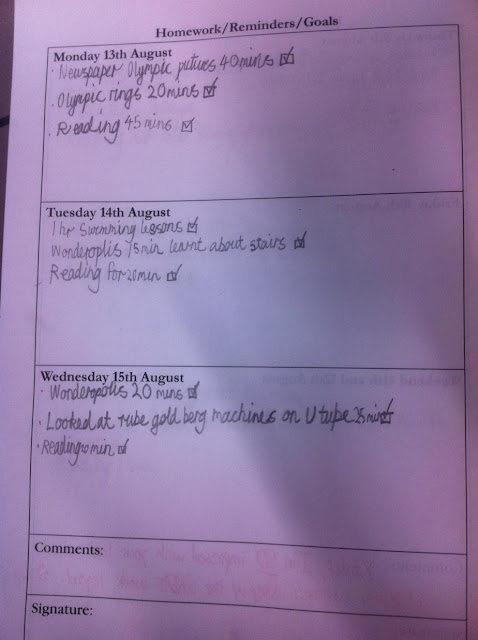 Homework/Reminders/Goals
Monday 13th August
· Newspaper Olympic pictures 40mins
· Olympic rings 20mins
· Reading 45 mins
Tuesday 14th August
1 hr swimming lessons
Wonderoplis 75min learnt about stairs
Reading for 20min
Wednesday 15th August
· Wonderopolis 20 mins
· Looked at rube gold berg machines on U tube 25mins
· Reading min
Comments:
Signature: